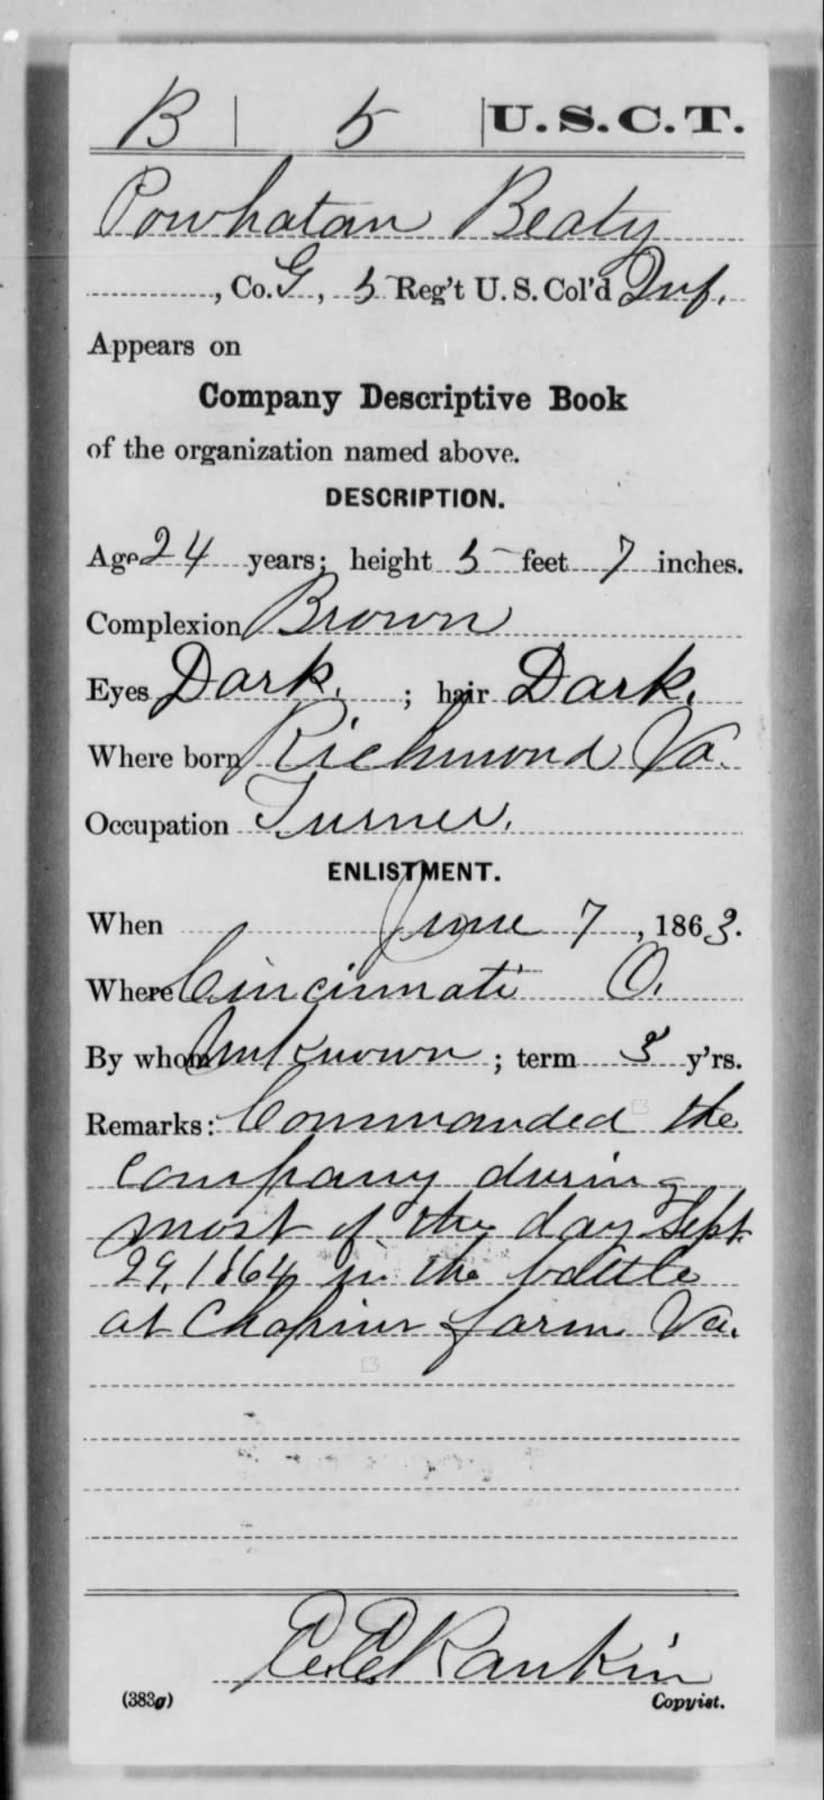 B | 5 | U.S.C.T.
Powhatan Beaty
, Co. G, 5 Reg't U. S. Col'd Inf.
Appears on
Company Descriptive Book
of the organization named above.
DESCRIPTION.
Age 24 years; height 5 feet 7 inches.
Complexion Brown
Eyes Dark. ; hair Dark.
Where born Richmond Va.
Occupation Turner.
ENLISTMENT.
When June 7, 1863.
Where Cincinnati O.
By whom Unknown ; term 3 y'rs.
Remarks: Commanded the
company during
most of the day Sept.
29, 1864 in the battle
at Chapins farm Va.
Rankin
(383g) Copyist.